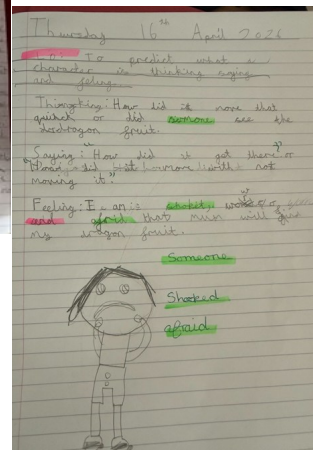 Thursday 16th April 2026
L.O: To predict what a
character is thinking saying
and feeling
Thingking: How did it move that
quick or did somone see the
dragon fruit.
Saying: "How did it get there or
How did not
moving it."
Feeling: I am is shoket or
and afraid that mum will find
my dragon fruit.
Someone
Shocked
afraid